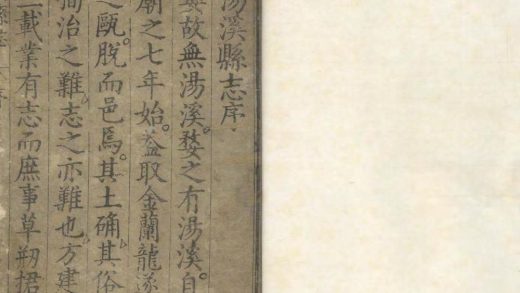 湯溪縣志序
婺故無湯溪婺之有湯溪自
廟之七年始益取金蘭龍遂
之甌脫而邑焉其土确其俗
治之難志之亦難也方建
載業有志而庶事草刱捃